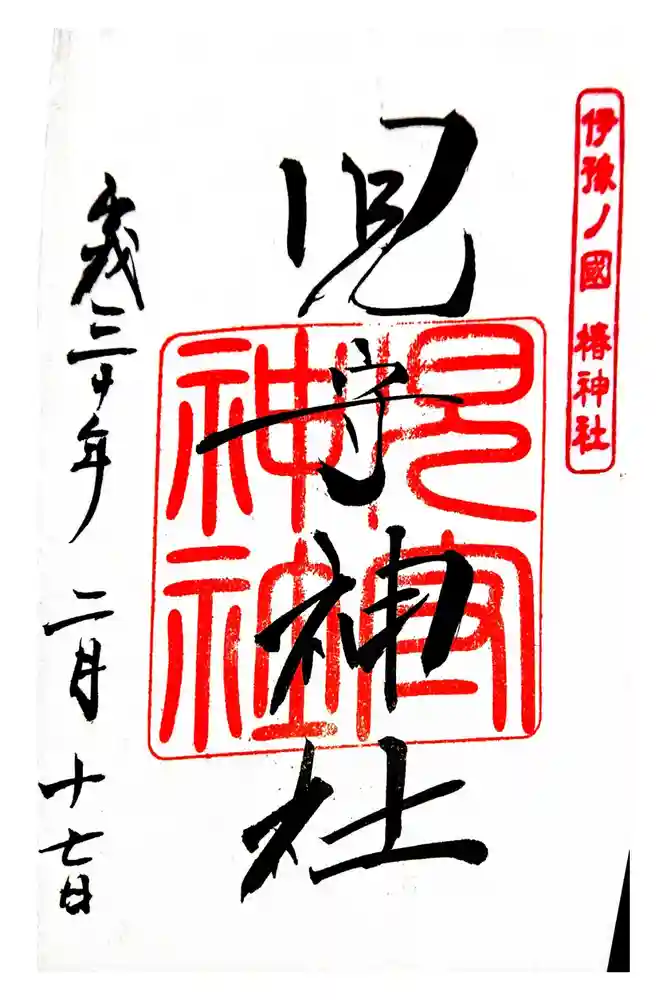 伊豫ノ國 椿神社
児守神社
児守
神社
平成三十年 二月 十七日